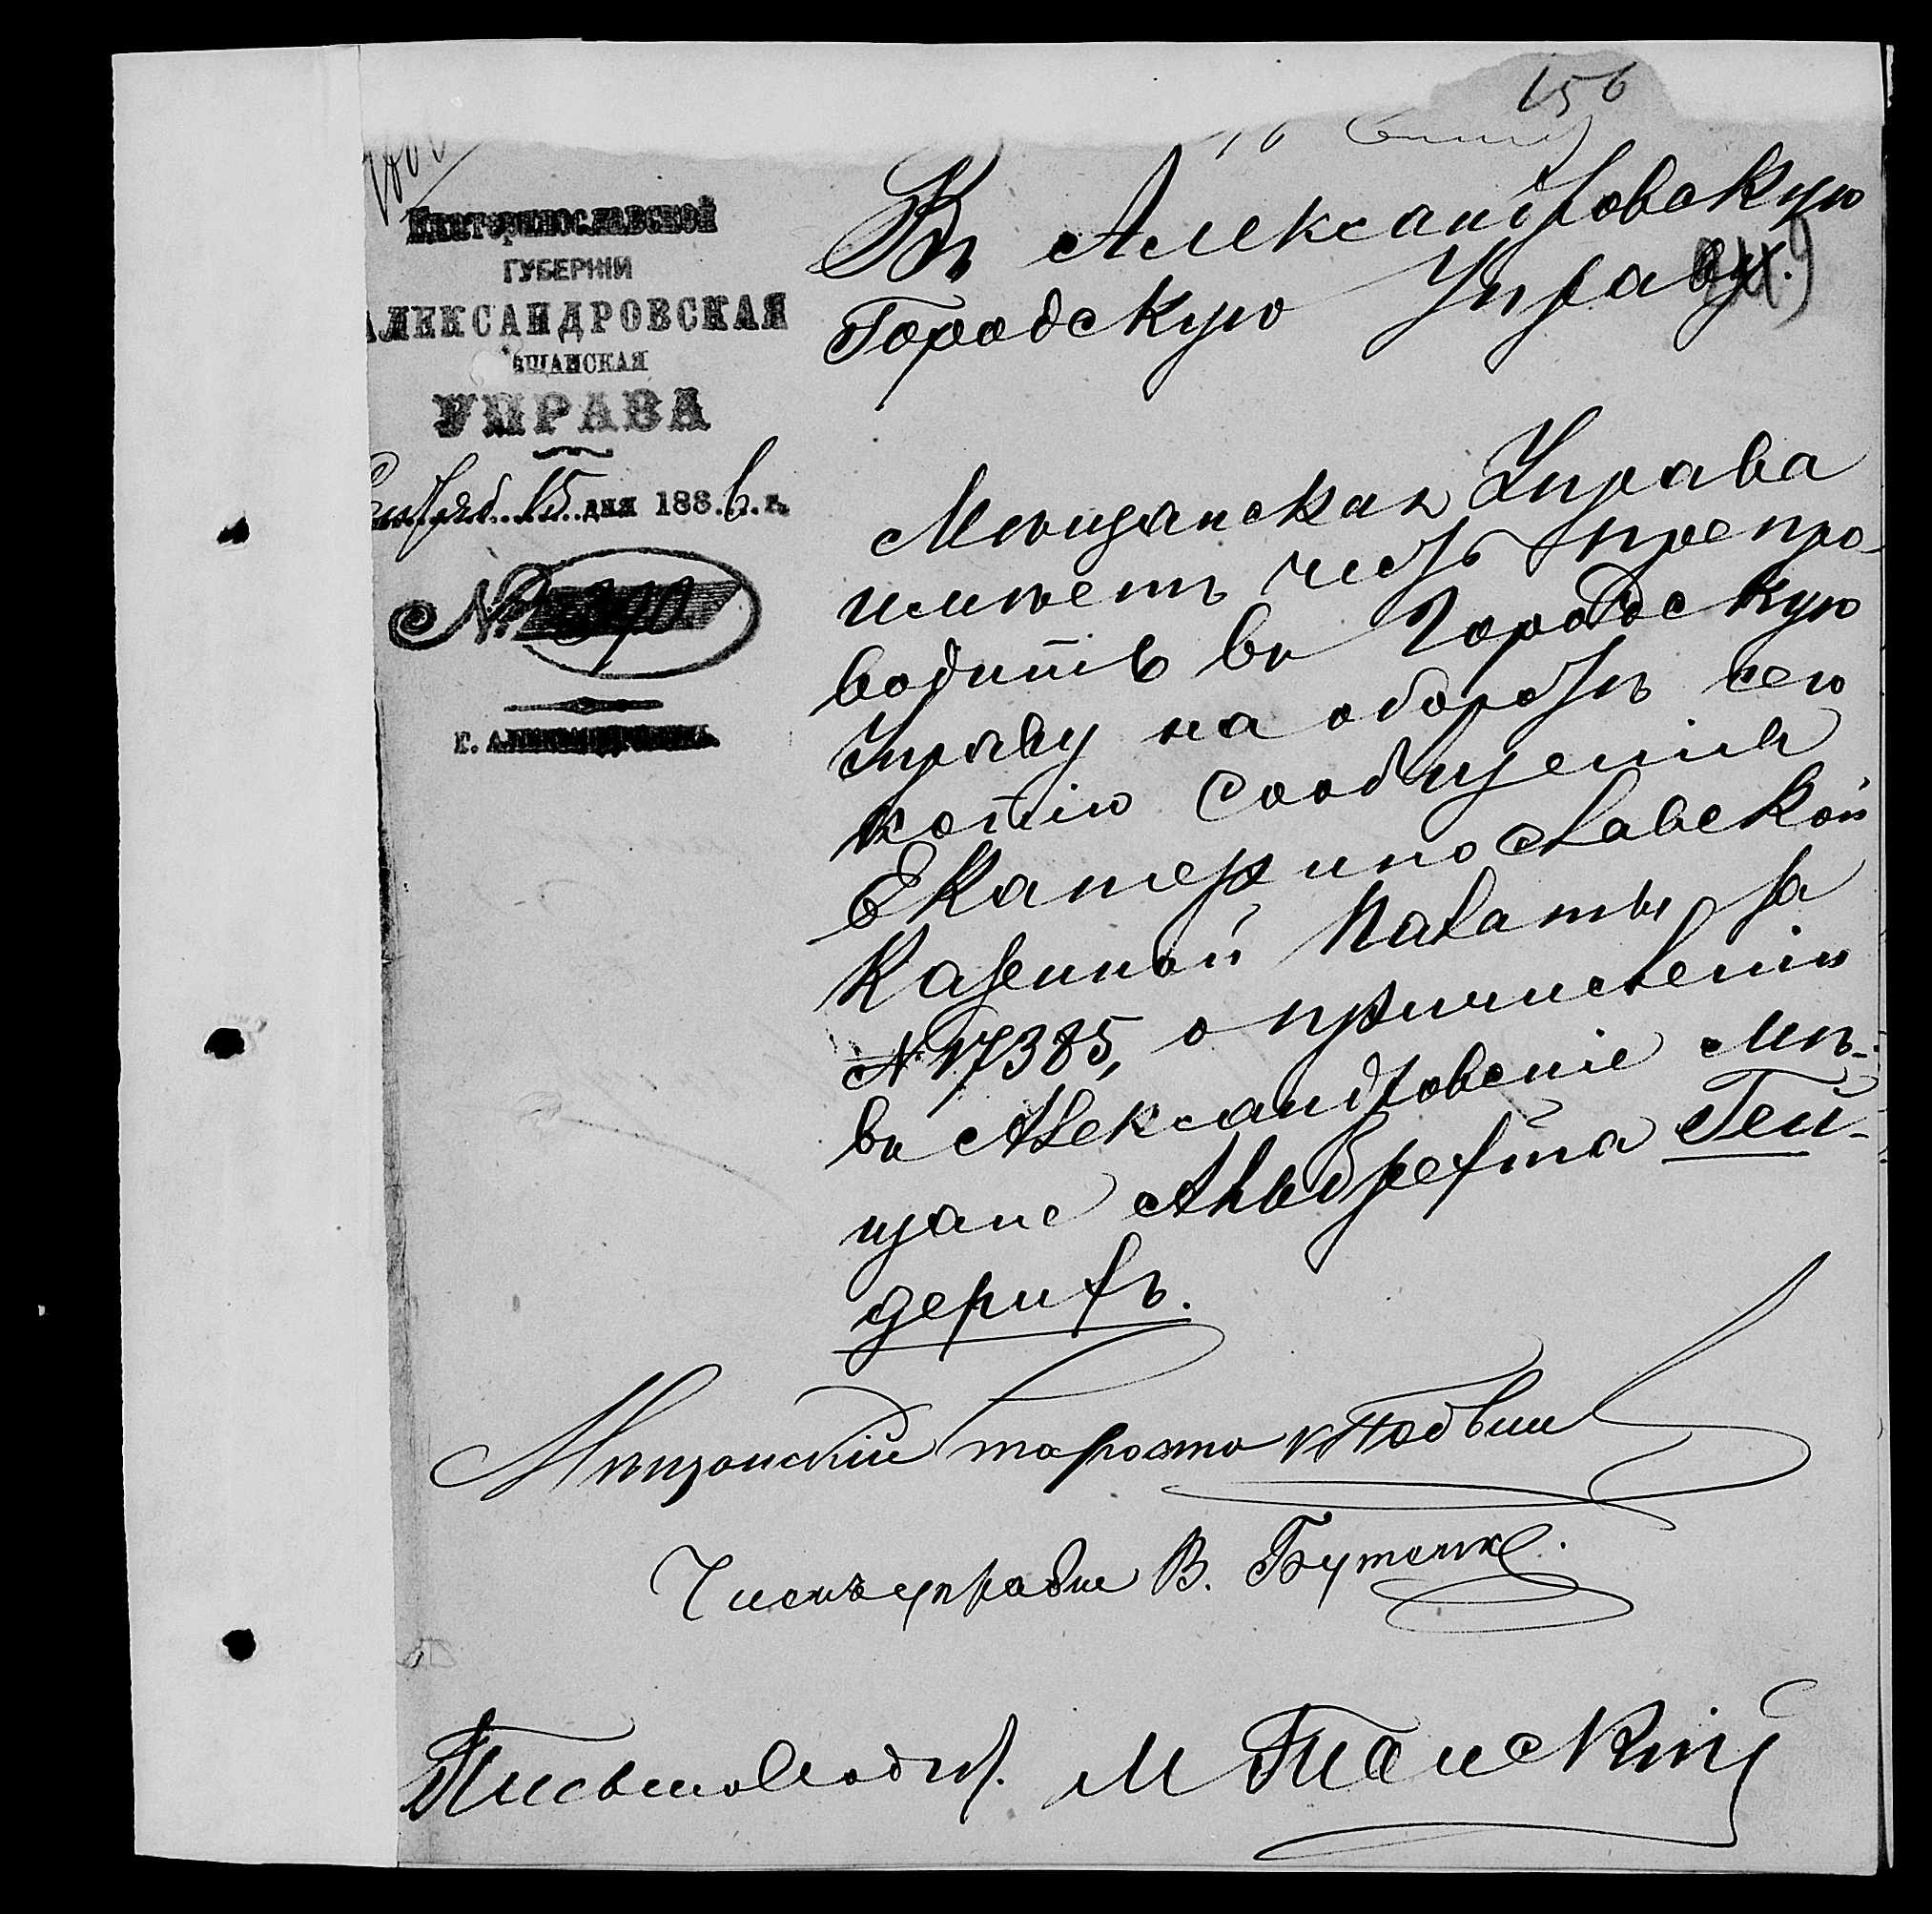 156
Екатеринославской
ГУБЕРНІИ
АЛЕКСАНДРОВСКАЯ
ѢЩАНСКАЯ
УПРАВА
Сентяб. 15 дня 1886 г.
№ 390
Г. АЛЕКСАНДРОВСКЪ
Въ Александровскую
Городскую Управу.
Мѣщанская Управа
имѣетъ честь препро-
водить въ Городскую
Управу на оборотѣ сего
копію сообщенія
Екатеринославской
Казенной Палаты за
№ 17385, о причисленіи
въ Александровскіе мѣ-
щане Альбрехта Ген-
дерихъ.
Мѣщанскій староста
Членъ управы В. Бутенко.
Письмоводит. М